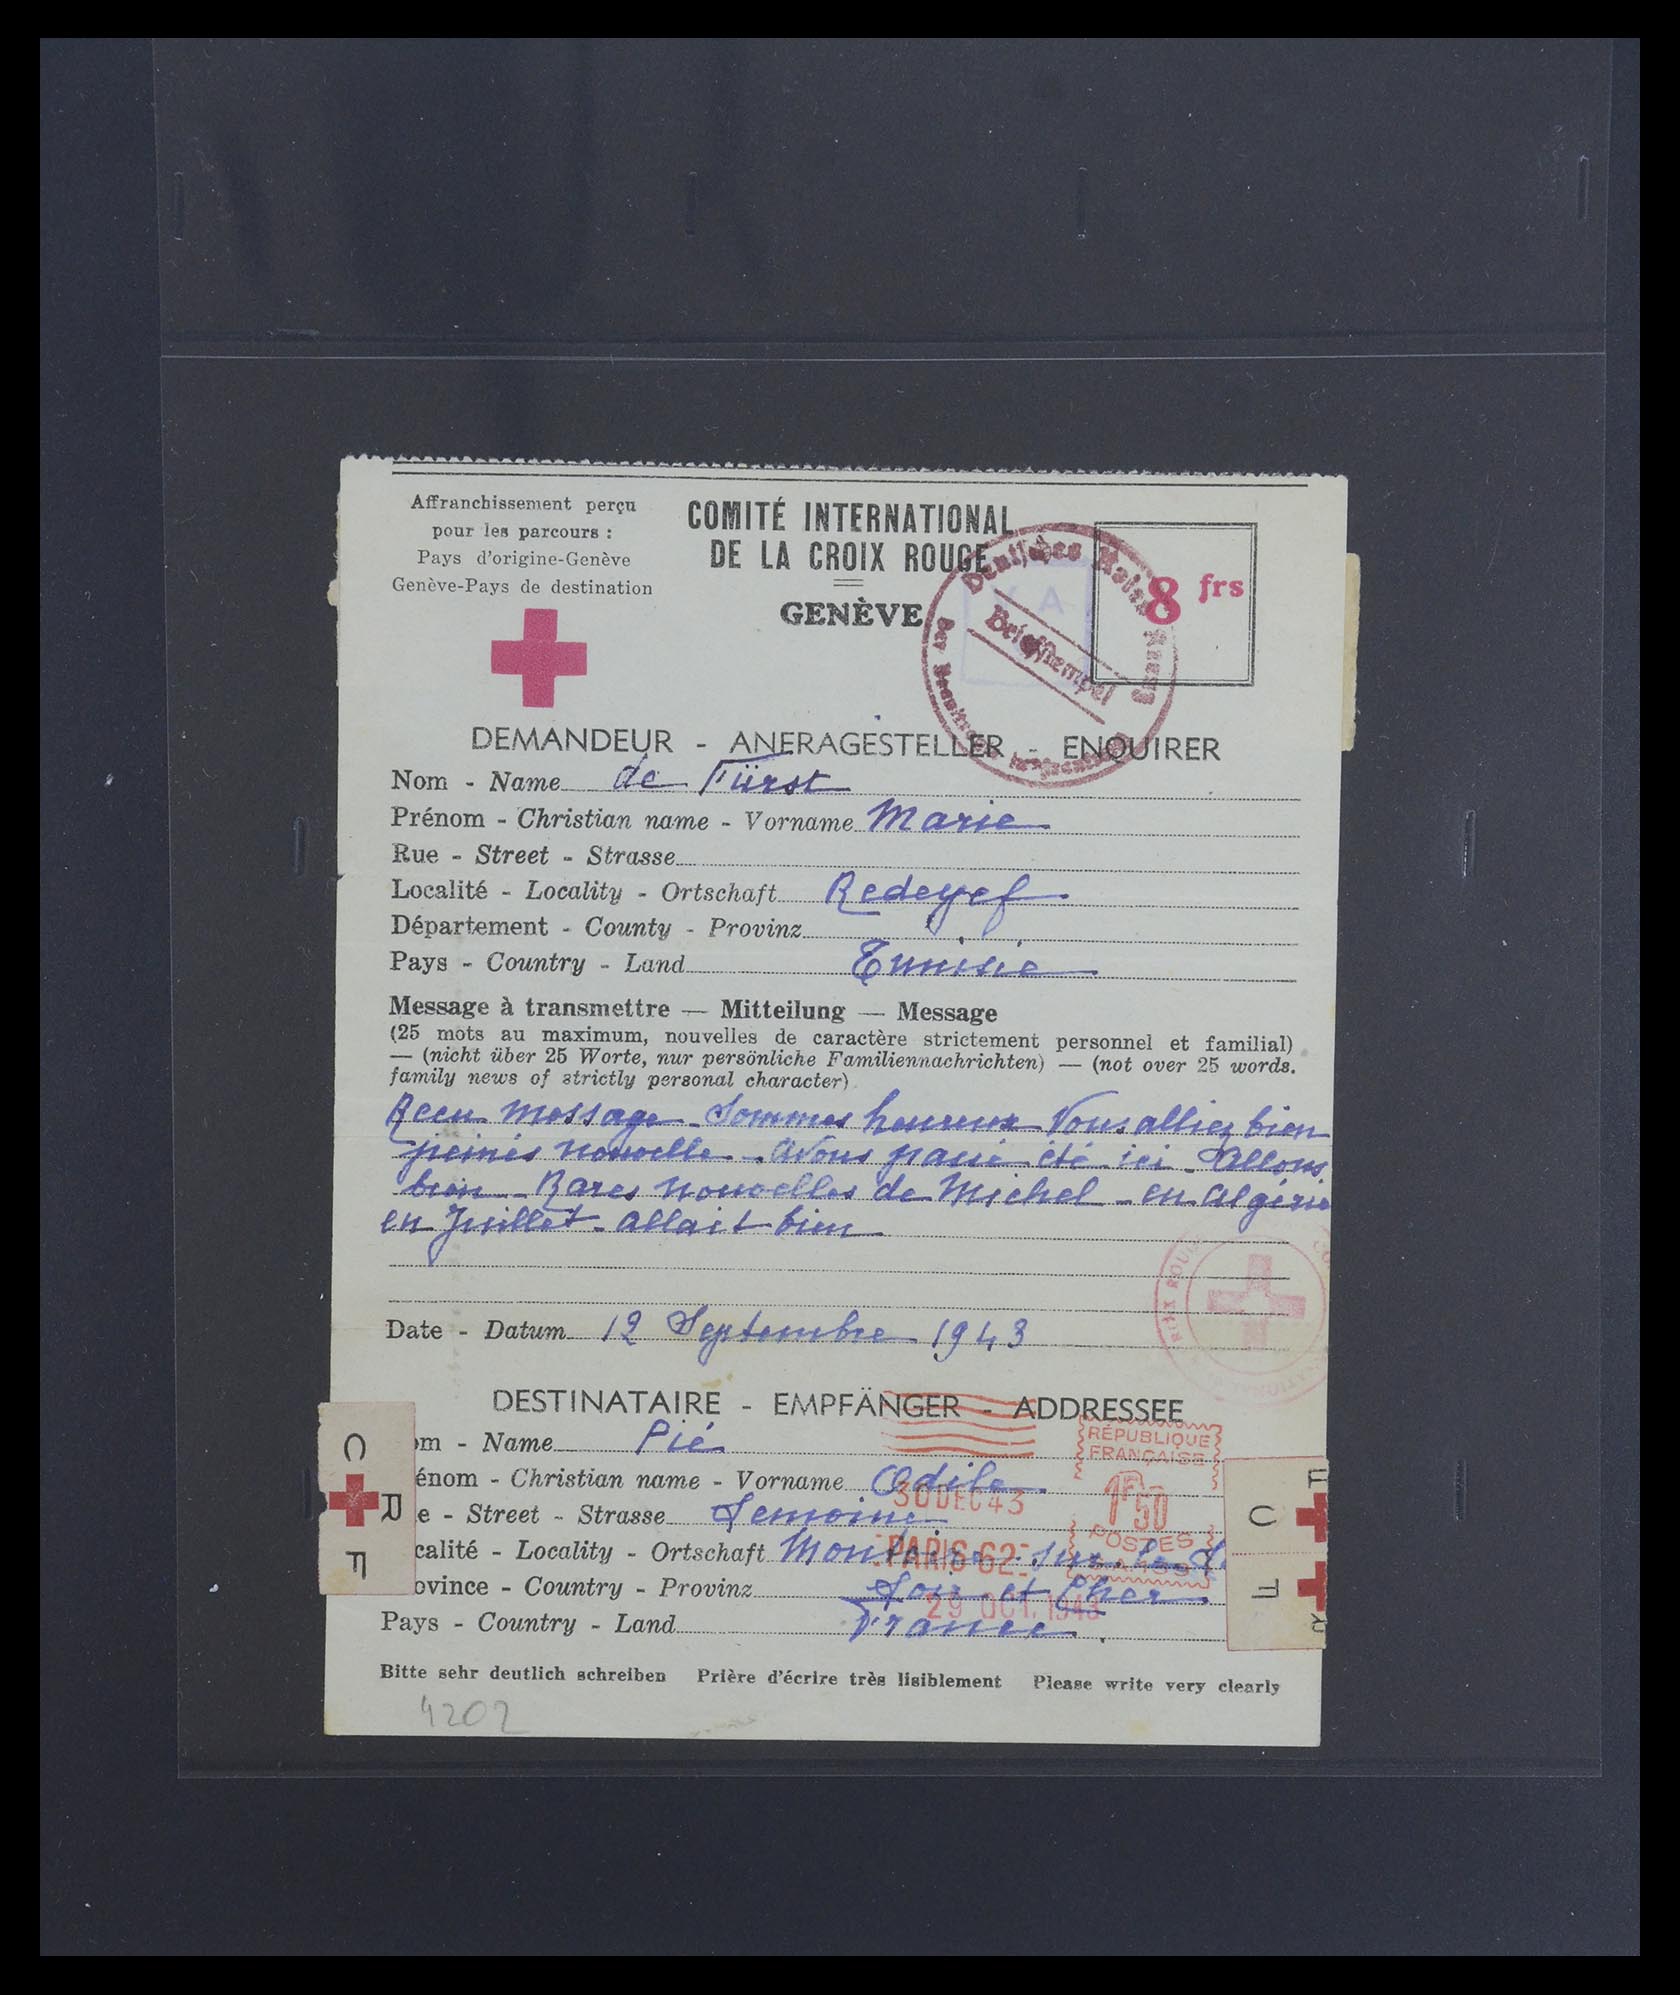 Affranchissement perçu
pour les parcours :
Pays d'origine-Genève
Genève-Pays de destination
COMITÉ INTERNATIONAL
DE LA CROIX ROUGE
GENÈVE
Deutsches Rotes Kreuz
Briefstempel
8 frs
DEMANDEUR - ANFRAGESTELLER - ENQUIRER
Nom - Name de Fürst
Prénom - Christian name - Vorname Marie
Rue - Street - Strasse
Localité - Locality - Ortschaft Redeyef
Département - County - Provinz
Pays - Country - Land Tunisie
Message à transmettre — Mitteilung — Message
(25 mots au maximum, nouvelles de caractère strictement personnel et familial)
— (nicht über 25 Worte, nur persönliche Familiennachrichten) — (not over 25 words.
family news of strictly personal character)
Recu message - Sommes heureux Vous alliez bien
peinés nouvelle - Avons passé été ici - Allons
bien - Rares nouvelles de Michel - en Algérie
en Juillet - allait bien
Date - Datum 12 Septembre 1943
DESTINATAIRE - EMPFÄNGER - ADDRESSEE
om - Name Pié
énom - Christian name - Vorname Odile
e - Street - Strasse Lemoine
calité - Locality - Ortschaft sur-le-L
ovince - Country - Provinz Loir et Cher
Pays - Country - Land France
RÉPUBLIQUE
FRANÇAISE
1F50
POSTES
30 DEC 43
PARIS 62
29 OCT. 1943
C R F
C F
F R C
Bitte sehr deutlich schreiben Prière d'écrire très lisiblement Please write very clearly
4202